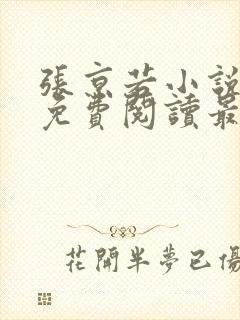 張京若小說
免費閱讀最
花開半夢已傷